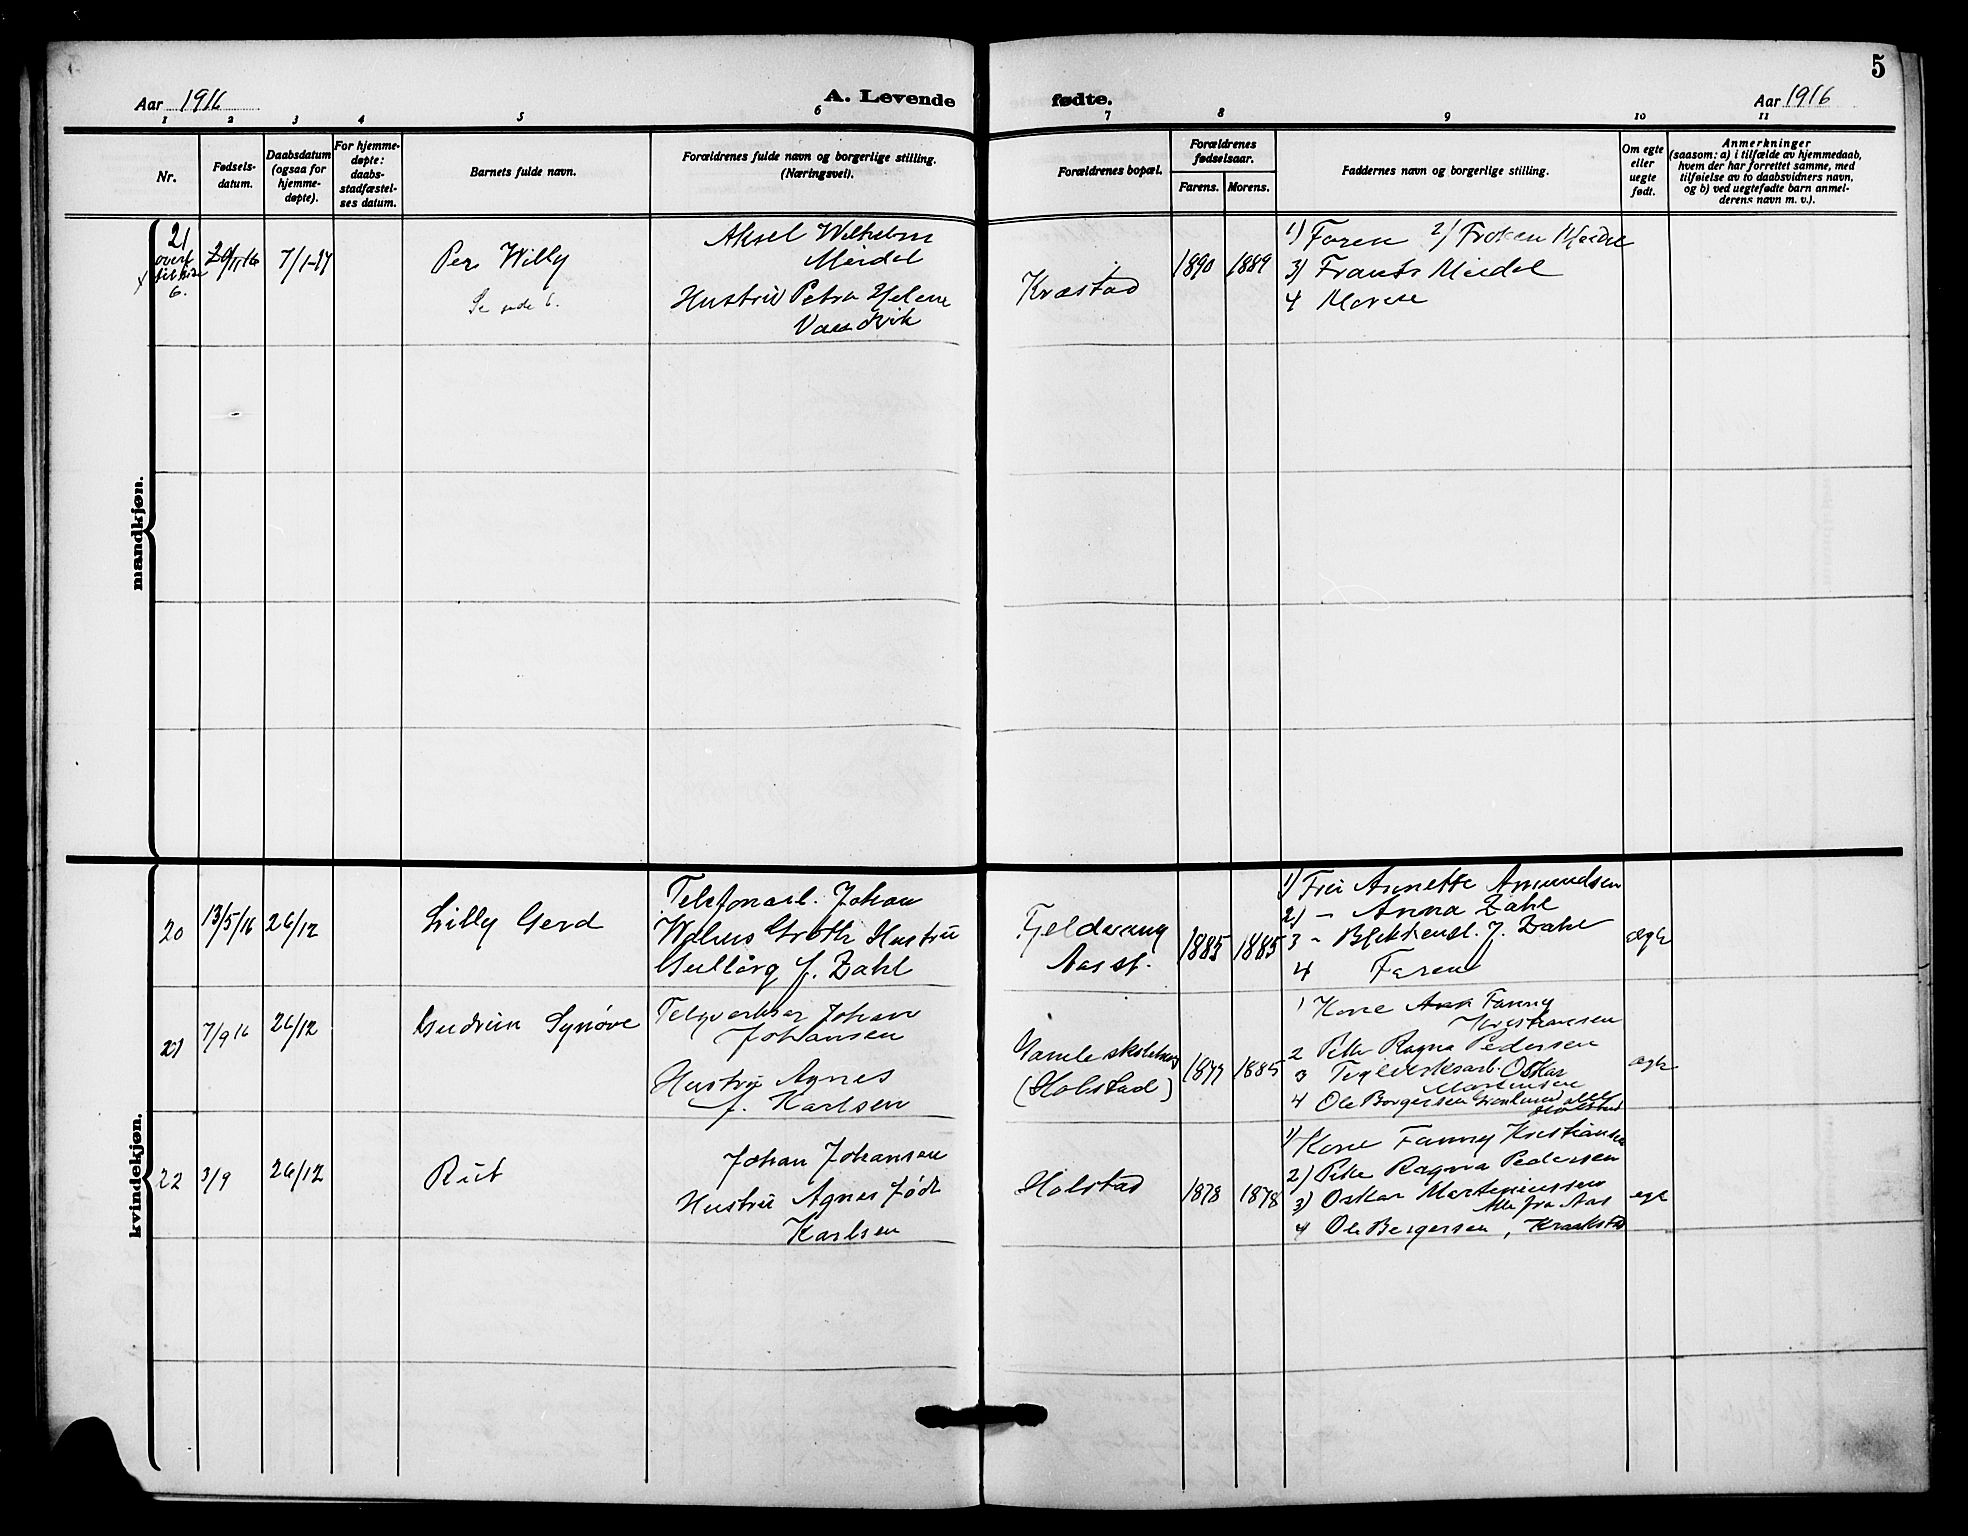 5
Aar 1916
A. Levende
fødte.
Aar 1916
1 2 3 4 5 6 7 8 9 10 11
Nr.
Fødsels-
datum.
Daabsdatum
(ogsaa for
hjemme-
døpte).
For hjemme-
døpte:
daabs-
stadfæstel-
ses datum.
Barnets fulde navn.
Forældrenes fulde navn og borgerlige stilling.
(Næringsvei).
Forældrenes bopæl.
Forældrenes
fødselsaar.
Farens. Morens.
Faddernes navn og borgerlige stilling.
Om egte
eller
uegte
født.
Anmerkninger
(saasom: a) i tilfælde av hjemmedaab,
hvem der har forrettet samme, med
tilføielse av to daabsvidners navn,
og b) ved uegtefødte barn anmel-
derens navn m. v.).
mandkjøn.
21
overf
til side
6.
7/1-17
Per Willy
Se side 6.
Aksel Wilhelm
Meidel
Hustru Petra Helene
Kræstad
1890
1889
1) Faren 2) Frøken Meidel
3) Frants Meidel
4 Moren
kvindekjøn.
20
13/5/16
26/12
Lilly Gerd
Telefonarb. Johan
Groth Hustru
Gullborg f. Zahl
Fjeldvang
Aas st.
1885
1885
1) Fru Annette Amundsen
2) - Anna Zahl
3 - J. Zahl
4 Faren
ægte
21
7/9 16
26/12
Gudrun Synøve
Johan
Johansen
Hustru Agnes
f. Karlsen
Gamle skolehus
(Holstad)
1877
1885
1 Kone Fanny
Kristiansen
2 Pike Ragna Pedersen
3 Teglverksarb. Oskar
Martinsen
4 Ole Borgersen alle
Holstad
ægte
22
3/9
26/12
Rut
Johan Johansen
Hustru Agnes født
Karlsen
Holstad
1878
1878
1) Kone Fanny Kristiansen
2) Pike Ragna Pedersen
3) Oskar Martiniussen
Alle fra Aas
4 Ole Borgersen, Kraakstad
egte